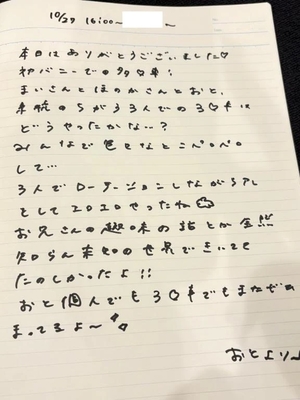 10/27 16:00〜
本日はありがとうございました♡
初バニーでの99♡車:
まいさんとほのかさんとおと、
どうやったかな‥?
みんなで色々なとこペロペロ
して…
3人でローションしながらアレ
としてエロエロやったね
お兄さんの趣味の話とか全然
知らん未知の世界できいてて
たのしかったよ!!
おと個人でも3♡車でもまたぜひ
まってるよ〜
おとより